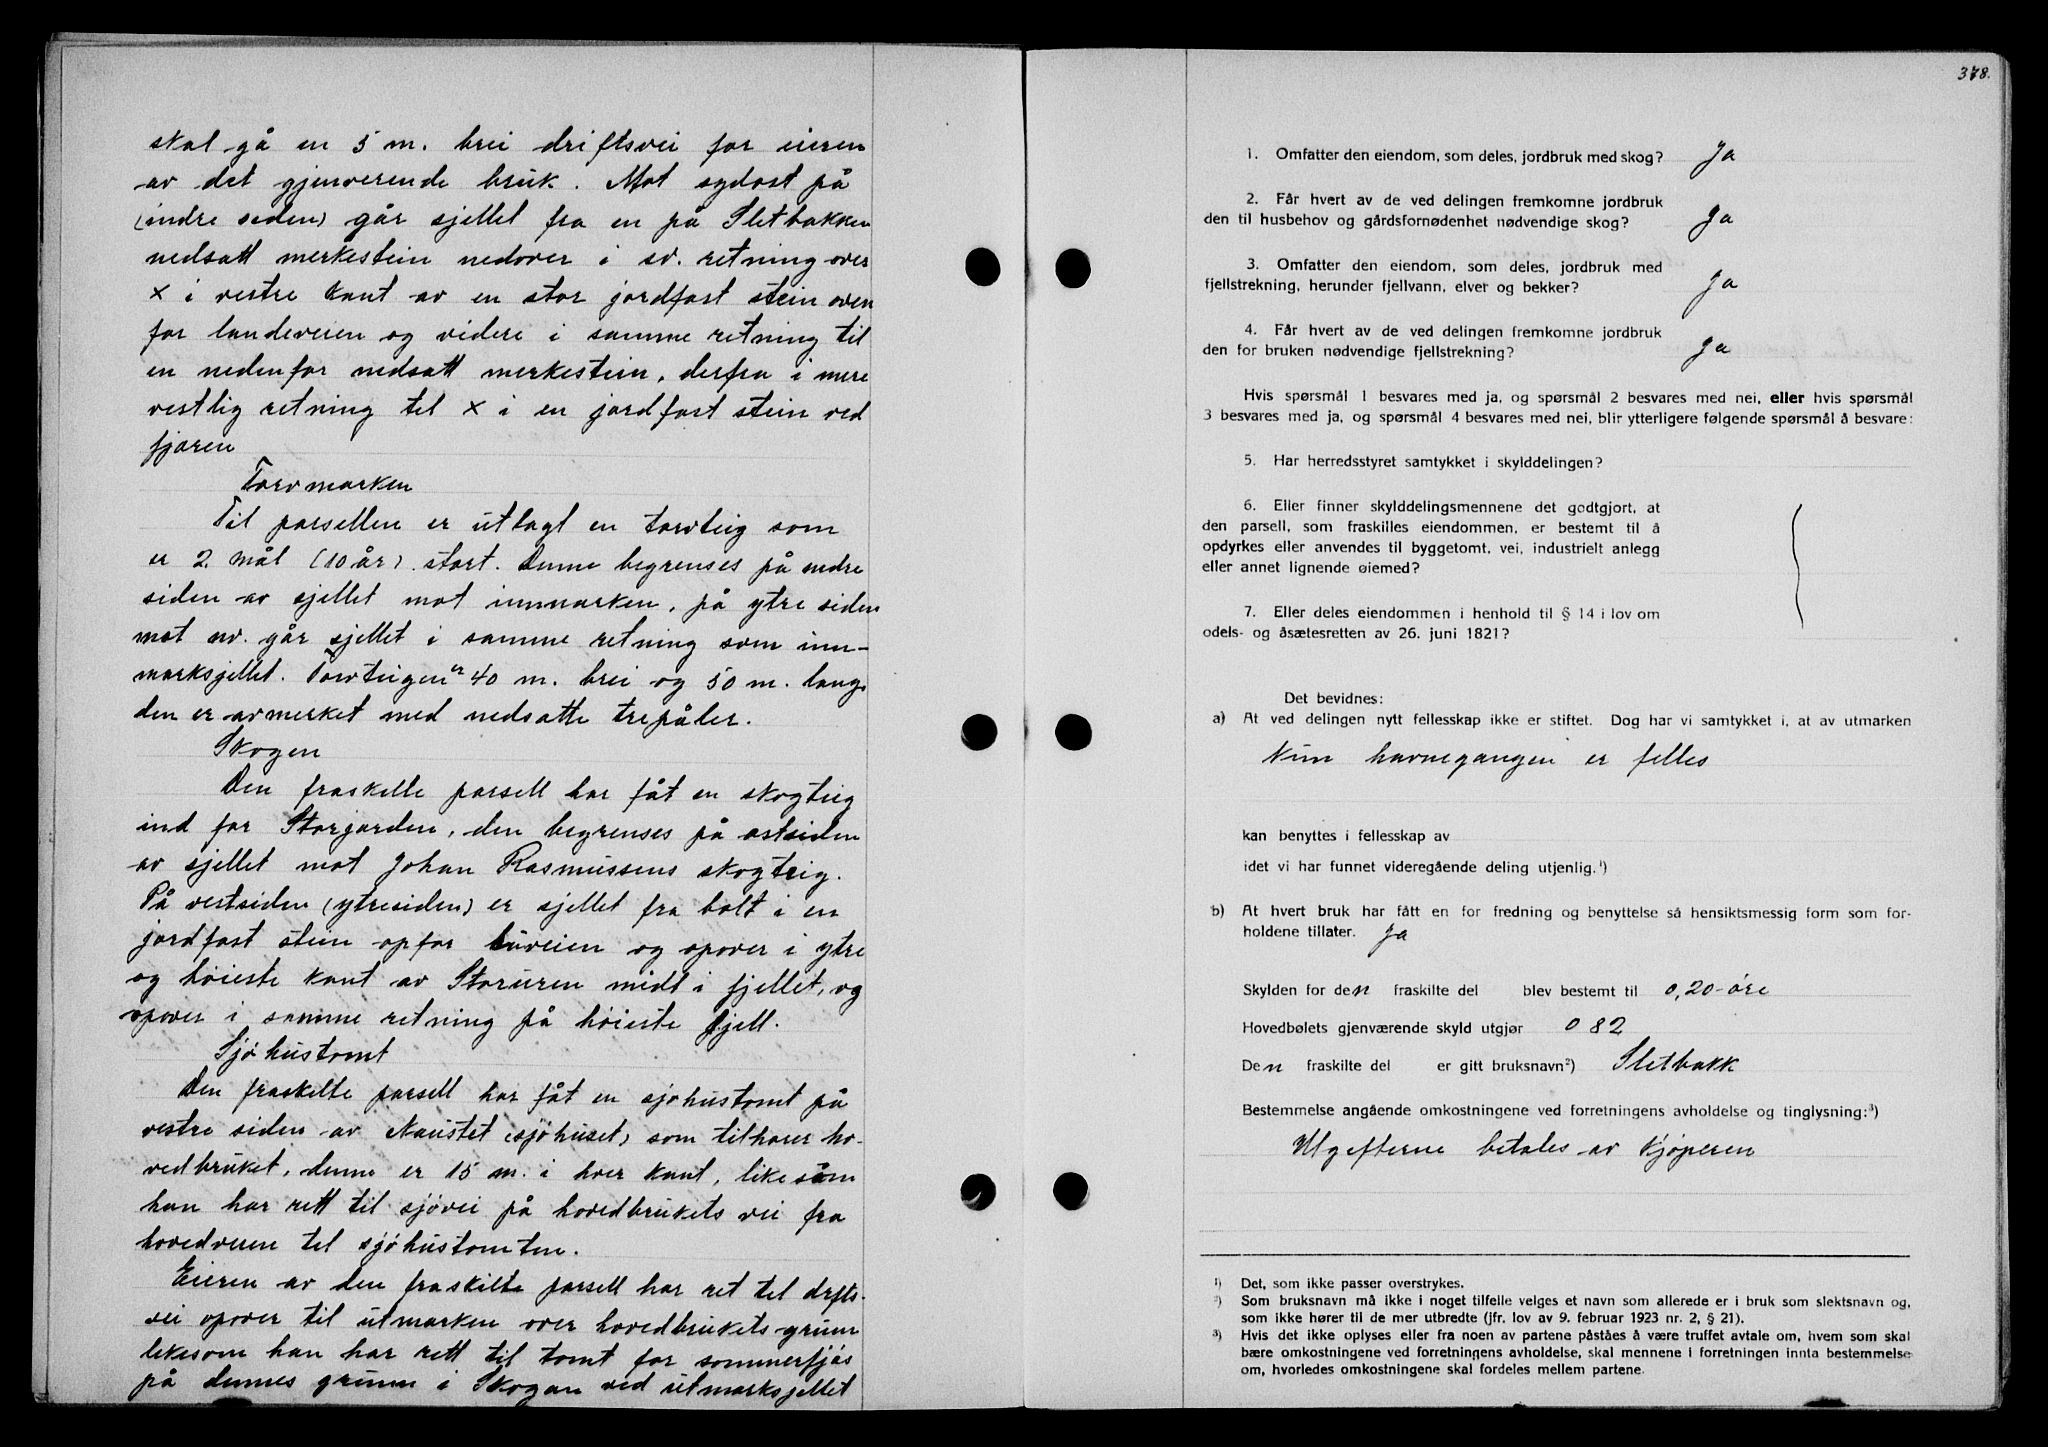 skal gå en 5 m. brei driftsvei for eieren
av det gjenverende bruk. Mot sydost på
(indre siden) går sjellet fra en på Sletbakken
nedsatt merkestein nedover i sv. retning over
x i vestre kant av en stor jordfast stein oven
for landeveien og videre i samme retning til
en nedenfor nedsatt merkestein, derfra i mere
vestlig retning til x i en jordfast stein ved
fjæren
Torvmarken
Til parsellen er utlagt en torvteig som
er 2 mål (10 år) stort. Denne begrenses på nedre
siden av sjellet mot innmarken, på ytre siden
mot nv. går sjellet i samme retning som inn-
marksjellet. Torvteigen er 40 m. brei og 50 m. lang,
den er avmerket med nedsatte trepåler.
Skogen
Den fraskelte parsell har fåt en skogteig
ind for Storjorden, den begrenses på ostsiden
av sjellet mot Johan Rasmussens skogteig.
På vestsiden (ytresiden) er sjellet fra bolt i en
jordfast stein opfor buveien og opover i ytre
og høieste kant av Storuren midt i fjellet, og
opover i samme retning på høieste fjell.
Sjöhustomt
Den fraskelte parsell har fåt en sjöhustomt på
vestre siden av Naustet (sjöhuset) som tilhorer ho-
vedbruket, denne er 15 m. i hver kant, like som
han har rett til sjövei på hovedbrukets vei fra
hovedveien til sjöhustomten.
Eieren av den fraskilte parsell har ret til drfts-
vei opover til utmarken over hovedbrukets grunn
likesom han har rett til tomt for sommerfjös
på dennes grunn i Skogan ved utmarksjellet
378.
1. Omfatter den eiendom, som deles, jordbruk med skog? Ja
2. Får hvert av de ved delingen fremkomne jordbruk
den til husbehov og gårdsfornødenhet nødvendige skog? Ja
3. Omfatter den eiendom, som deles, jordbruk med
fjellstrekning, herunder fjellvann, elver og bekker? Ja
4. Får hvert av de ved delingen fremkomne jordbruk
den for bruken nødvendige fjellstrekning? Ja
Hvis spørsmål 1 besvares med ja, og spørsmål 2 besvares med nei, eller hvis spørsmål
3 besvares med ja, og spørsmål 4 besvares med nei, blir ytterligere følgende spørsmål å besvare:
5. Har herredsstyret samtykket i skylddelingen?
6. Eller finner skylddelingsmennene det godtgjort, at
den parsell, som fraskilles eiendommen, er bestemt til å
opdyrkes eller anvendes til byggetomt, vei, industrielt anlegg
eller annet lignende øiemed?
7. Eller deles eiendommen i henhold til § 14 i lov om
odels- og åsætesretten av 26. juni 1821?
Det bevidnes:
a) At ved delingen nytt fellesskap ikke er stiftet. Dog har vi samtykket i, at av utmarken
Kun havnegangen er felles
kan benyttes i fellesskap av
idet vi har funnet videregående deling utjenlig.¹)
b) At hvert bruk har fått en for fredning og benyttelse så hensiktsmessig form som for-
holdene tillater. Ja
Skylden for den fraskilte del blev bestemt til 0,20 öre
Hovedbølets gjenværende skyld utgjør 0 82
Den fraskilte del er gitt bruksnavn²) Sletbakk
Bestemmelse angående omkostningene ved forretningens avholdelse og tinglysning:³)
Utgifterne betales av kjøperen
¹) Det, som ikke passer overstrykes.
²) Som bruksnavn må ikke i noget tilfelle velges et navn som allerede er i bruk som slektsnavn og,
som ikke hører til de mer utbredte (jfr. lov av 9. februar 1923 nr. 2, § 21).
³) Hvis det ikke oplyses eller fra noen av partene påståes å være truffet avtale om, hvem som skal
bære omkostningene ved forretningens avholdelse, skal mennene i forretningen innta bestemmelse
om, hvorledes omkostningene skal fordeles mellem partene.